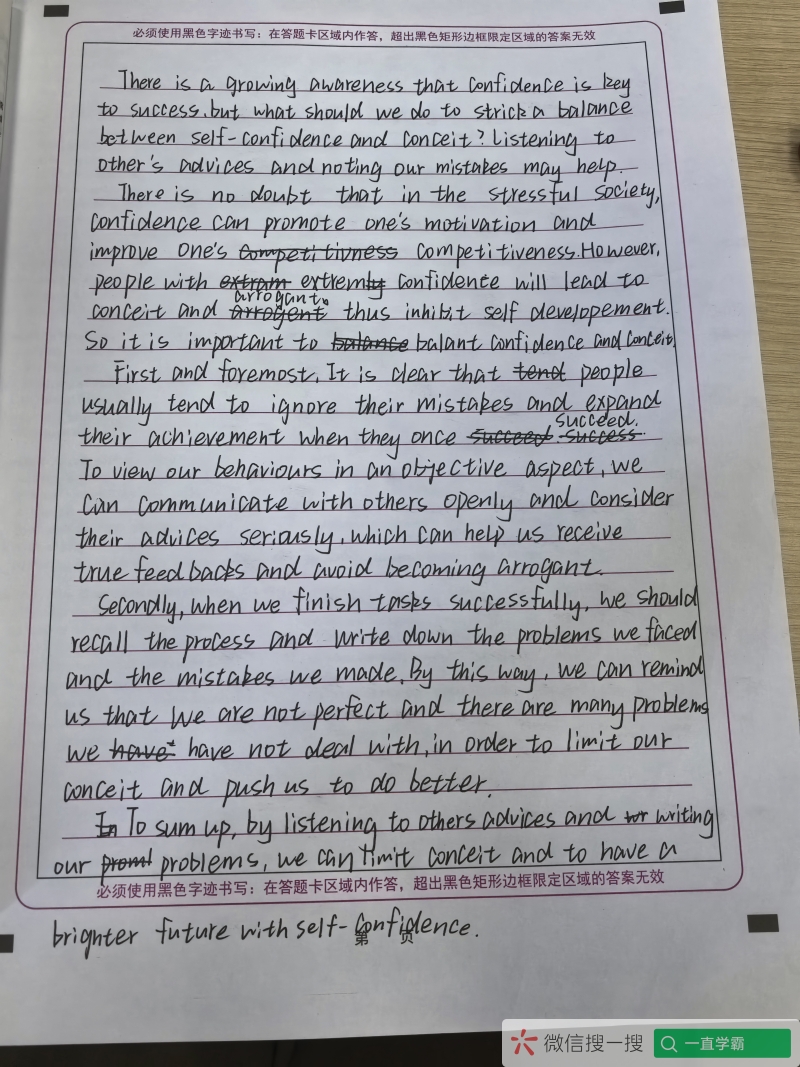 必须使用黑色字迹书写：在答题卡区域内作答，超出黑色矩形边框限定区域的答案无效
There is a growing awareness that confidence is key
to success, but what should we do to strick a balance
between self-confidence and conceit? Listening to
other's advices and noting our mistakes may help.
There is no doubt that in the stressful society,
confidence can promote one's motivation and
improve one's competitivness competitiveness. However,
people with extram extremly confidence will lead to
arrogant,
conceit and arrogent thus inhibit self developement.
So it is important to balance balant confidence and conceit.
First and foremost, It is clear that tend people
usually tend to ignore their mistakes and expand
succeed.
their achievement when they once succeed success
To view our behaviours in an objective aspect, we
can communicate with others openly and consider
their advices seriously, which can help us receive
true feedbacks and avoid becoming arrogant.
Secondly, when we finish tasks successfully, we should
recall the process and write down the problems we faced
and the mistakes we made. By this way, we can remind
us that we are not perfect and there are many problems
we have have not deal with, in order to limit our
conceit and push us to do better.
In To sum up, by listening to others advices and wr writing
our proml problems, we can limit conceit and to have a
必须使用黑色字迹书写：在答题卡区域内作答，超出黑色矩形边框限定区域的答案无效
brighter future with self-confidence.
第 页
微信搜一搜
一直学霸